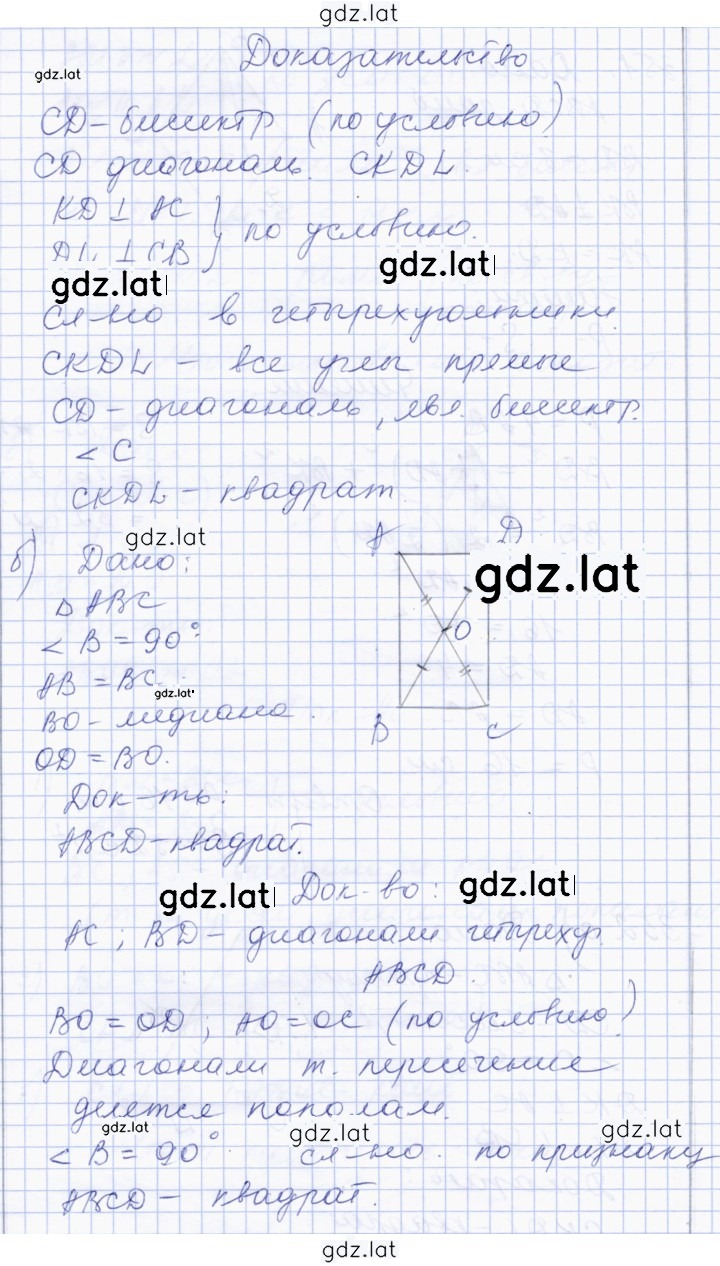 gdz.lat
Доказательство
gdz.lat
CD - биссектр (по условию)
CD диагональ CKDL.
KD ⊥ AC } по условию.
DL ⊥ CB
gdz.lat
gdz.lat
сл-но в четырехугольники
CKDL - все углы прямые
CD - диагональ, явл. биссектр.
< C
CKDL - квадрат
gdz.lat
б) Дано:
A D
gdz.lat
△ ABC
< B = 90°
O
AB = BC
gdz.lat
BO - медиана.
B C
OD = BO.
Док-ть:
ABCD - квадрат.
gdz.lat Док-во: gdz.lat
AC ; BD - диагонали четыреху.
ABCD.
BO = OD ; AO = OC (по условию)
Диагонали т. пересечение
делятся пополам.
gdz.lat
gdz.lat
gdz.lat
< B = 90° сл-но. по признаку
ABCD - квадрат.
gdz.lat